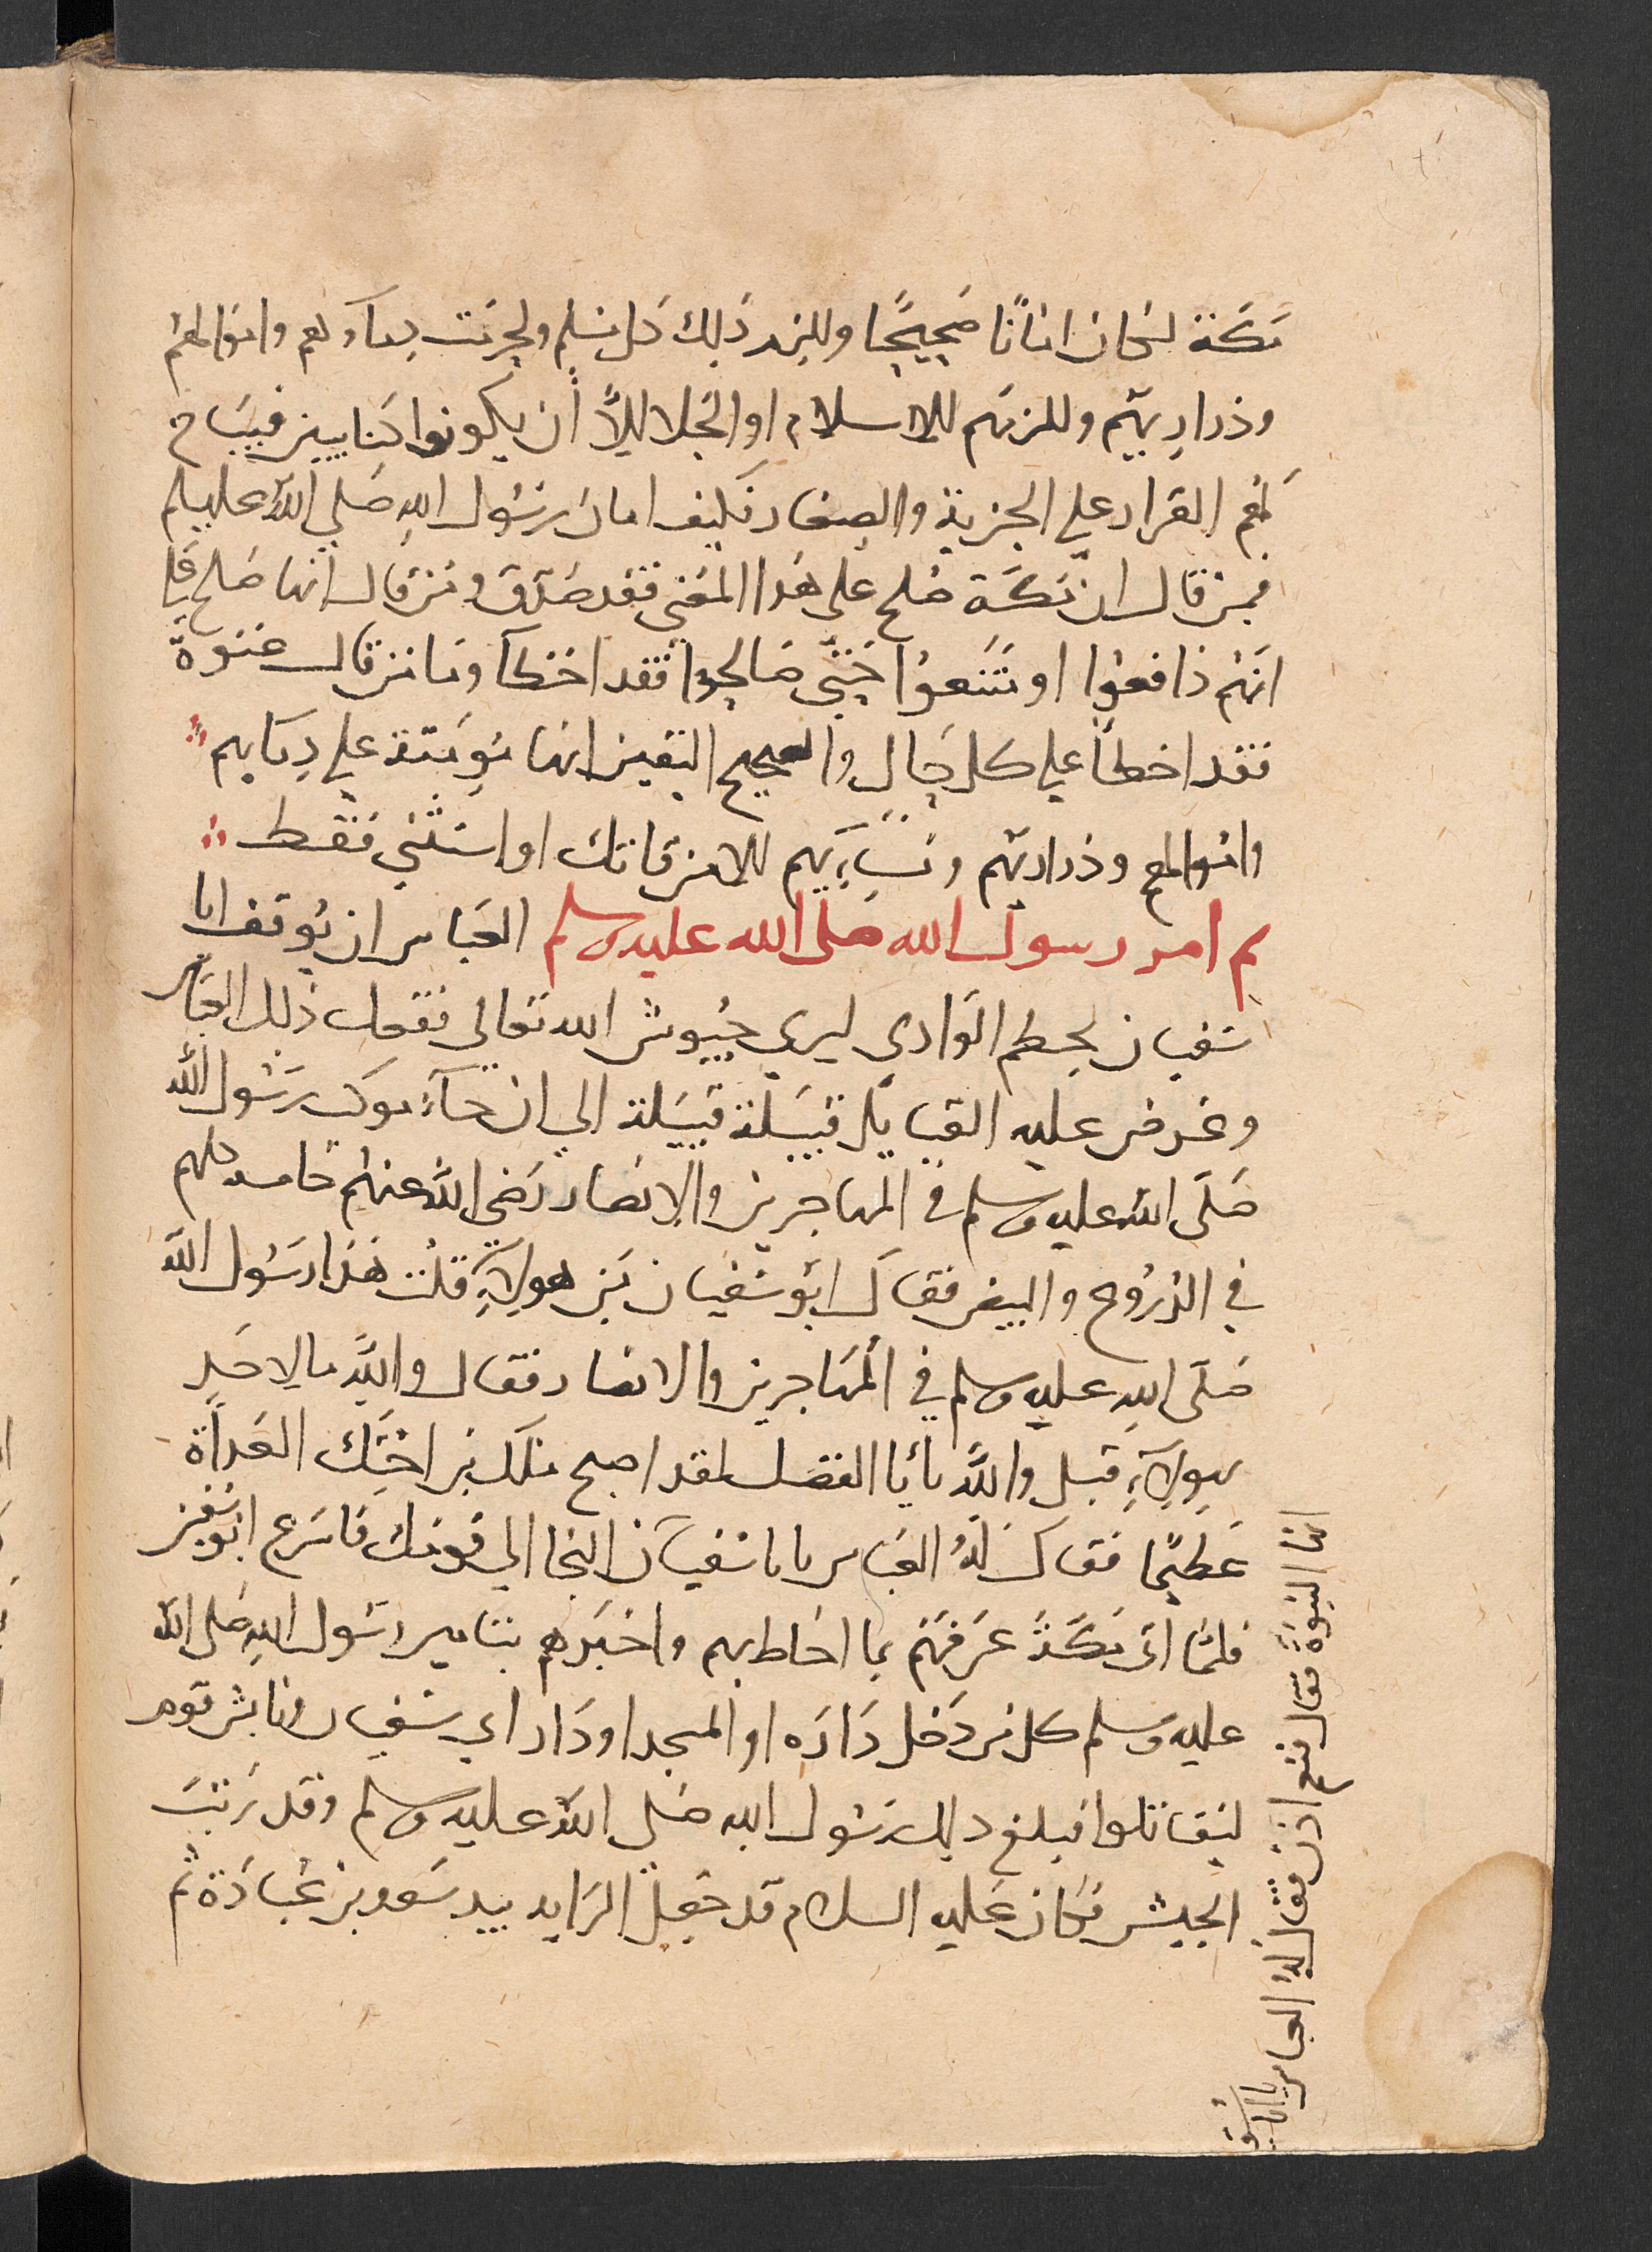 مَكة لكان امانًا صَحِيحًا وللزم ذَلِك كل مسلم ولحرمت دماوهم واموالهم
وذراريهم وللزمهم للاسلام او الجلا الاَّ أن يكونوا كتابيين فيبَاح
لهم القرار علي الجزية والصغار فكيف امان رسُول الله صَلي الله عليه وسلم
فمن قال ان مَكَّة صُلح على هذا المعَني فقد صَدَق ومَن قال انها صُلح عَلي
انهم دَافعُوا او مَنَعوا حَتي صَالحوا فقد اخطآ وامَا من قال عَنوة
فقد اخطأ علي كل حَال والصحيح اليقين انها مؤمنة علي دِمايهم
واموالهم وذراريهم ونسَايهم الا من قاتل او استثني فقط
ثم امر رسول الله صلى الله عليه وسلم العَباس ان يُوقف ابا
سُفيان بخطم الوَادي ليري جيُوش الله تعَالي ففعل ذلك العَباس
وعَرض عليه القبايل قبيلة قبيلة الي ان جَآء موكب رسُول الله
صَلى الله عليه وسلم في المهاجرين والانصار رَضي الله عنهم خاصه كلهم
في الدُرُوع والبيض فقال ابو سُفيان مَن هولآءِ قلت هَذا رسُول الله
صَلى الله عليه وسلم في المهَاجرين والانصار فقال والله ما لاحَدٍ
بهولاءِ قبل والله يأبا الفضل لقد اصبح ملك بن اخيك الغَداة
عَظيمًا فقال لهُ العباس يابا سُفيان النجا الي قومك فاسرع ابو سُفين
فلمَا اتى مَكة عرَفهُم بما احَاط بهم واخبَرهم بتامين رسُول الله صَلى الله
عليه وسلم كل من دَخل دَارَه او المسجد او دَار ابي سُفيان وتابش قوم
ليقاتلوا فبلغ ذلك رسُول الله صَلي الله عليه وسلم وقد رَتبَ
الجيش فكان عَليه السلام قد جَعل الرايه بيد سَعد بن عُبَادَة ثم
انها النبوة فقال نعم اذن فقال له العباس يا ابا